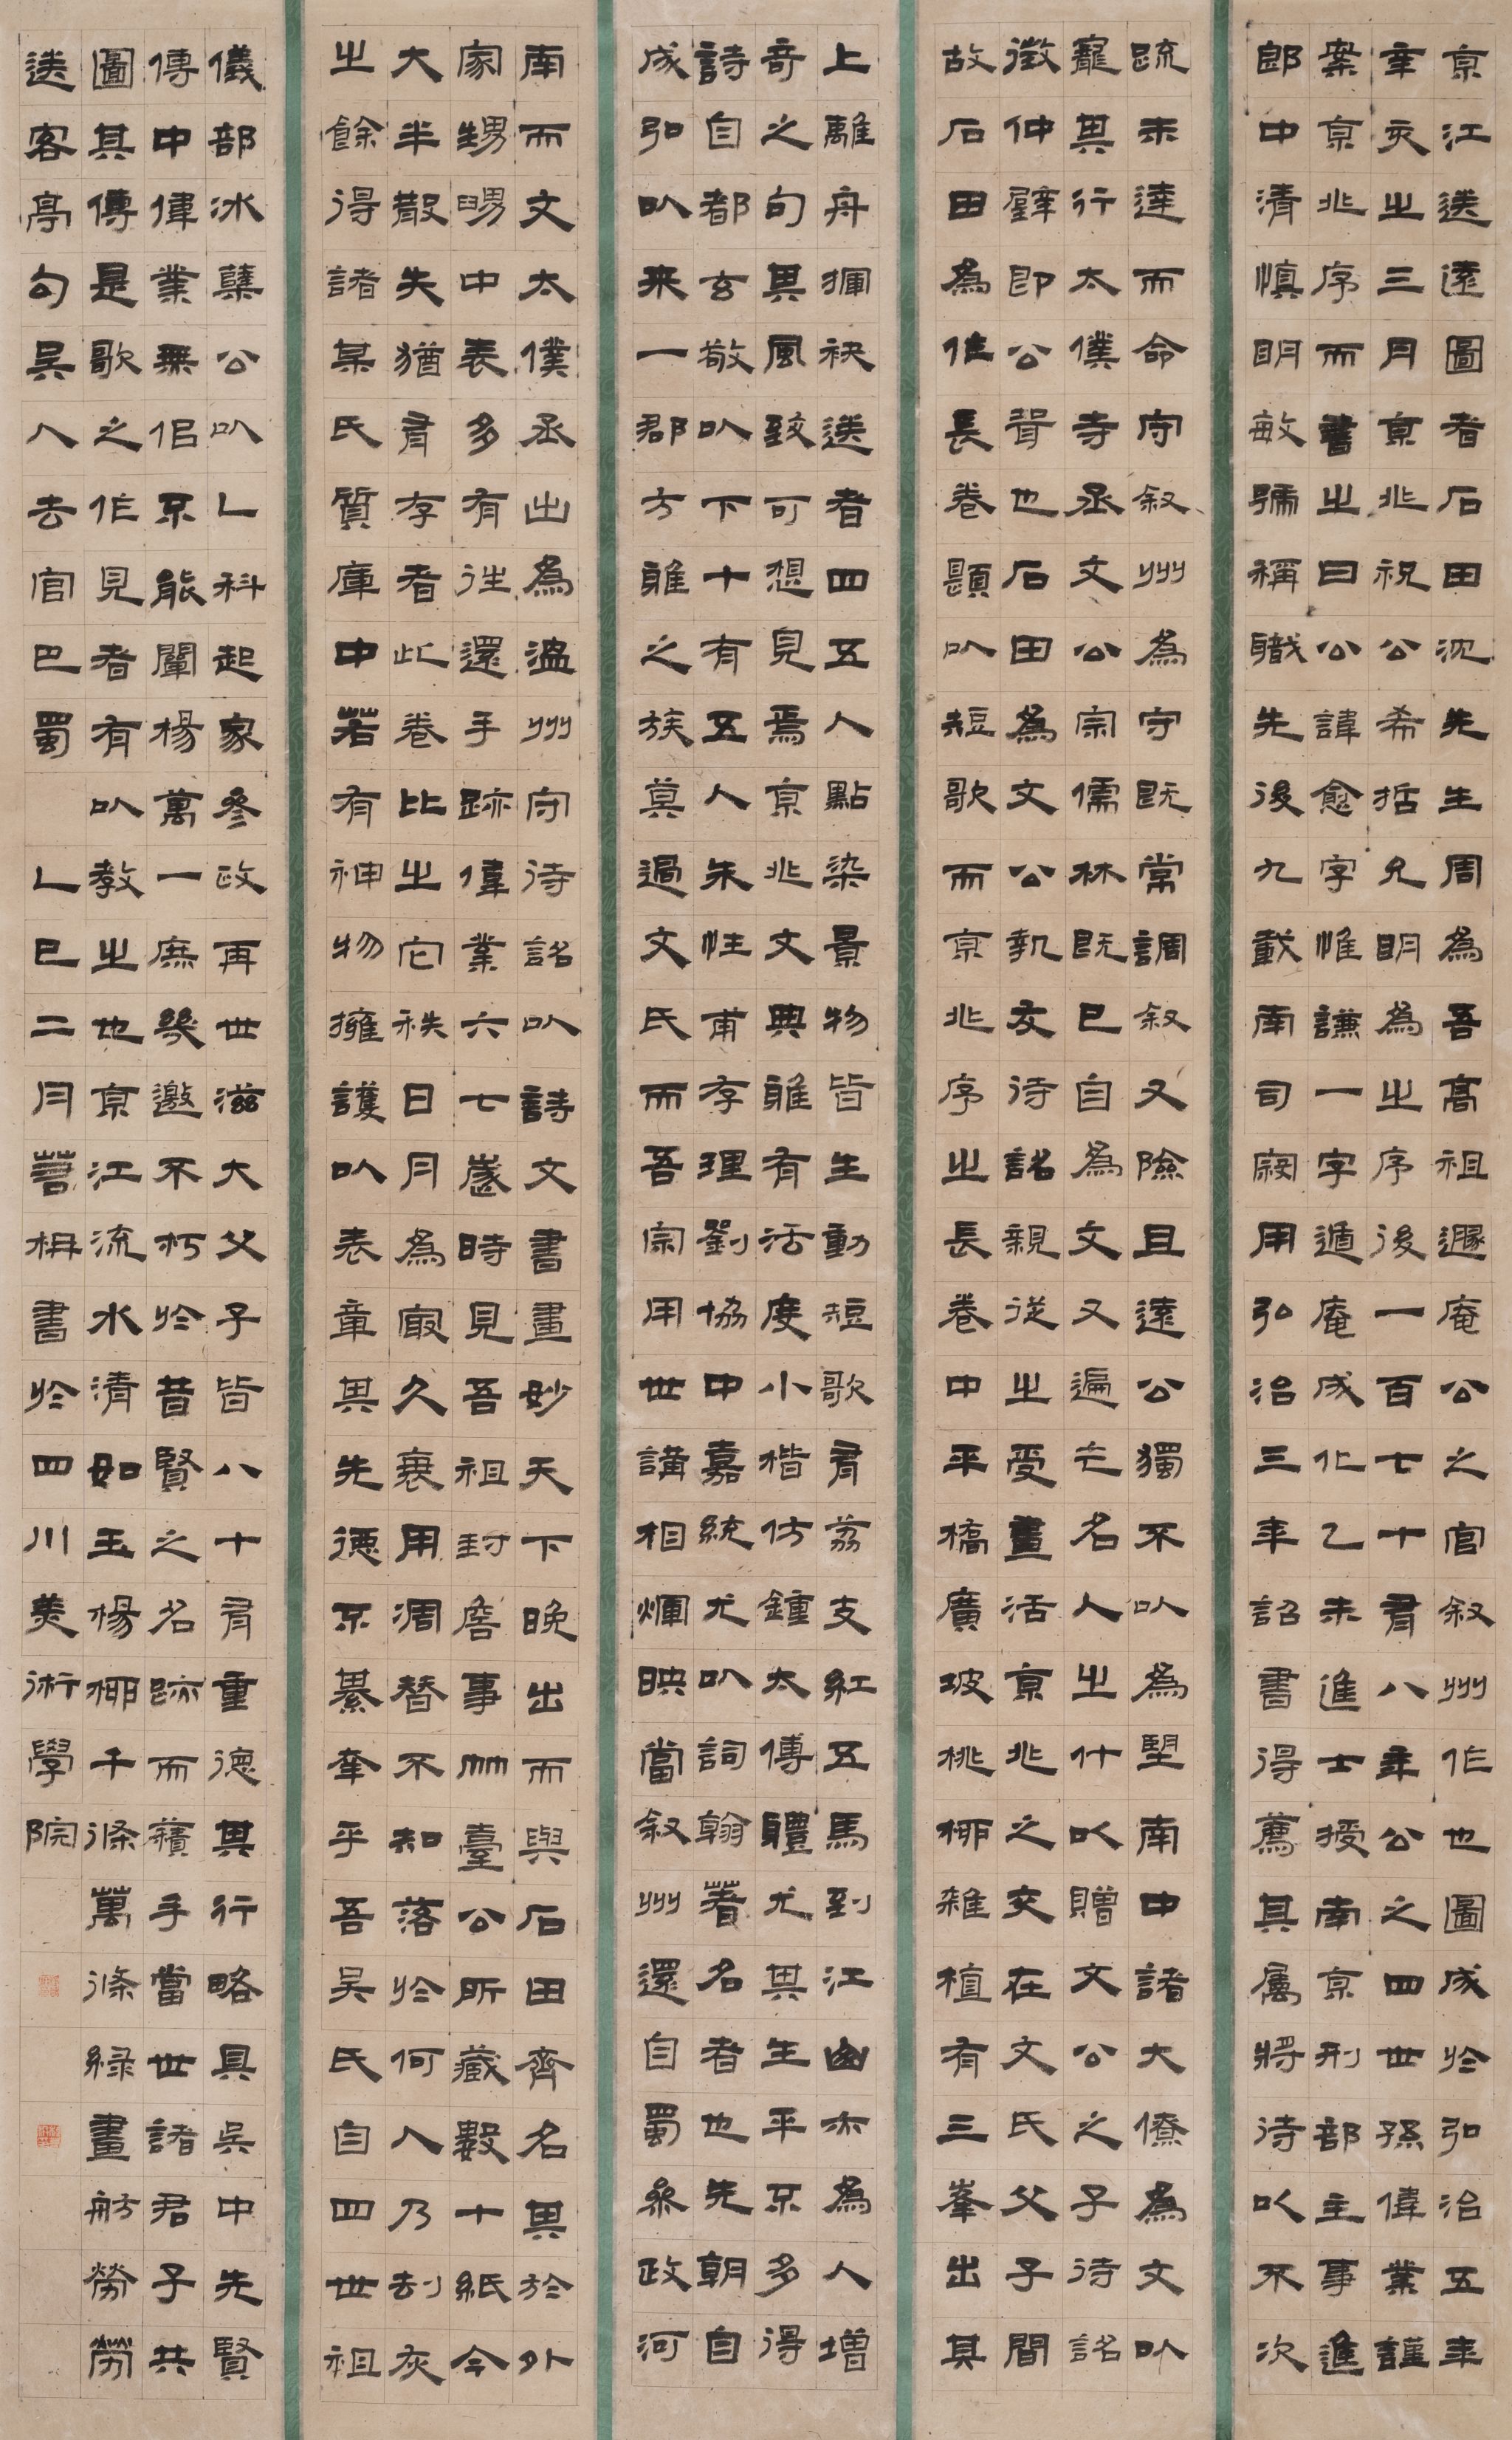 京江送遠圖者石田沈先生周為吾高祖遯庵公之官敘州作也圖成於弘治五年
辛亥之三月京兆祝公希哲允明為之序後一百七十有八年公之四世孫偉業謹
案京兆序而書之曰公諱愈字惟謙一字遁庵成化乙未進士授南京刑部主事進
郎中清慎明敏號稱職先後九載南司寇用弘治三年詔書得薦其屬將待以不次
疏未達而命守敘州為守既常調敘又險且遠公獨不以為望南中諸大僚為文以
寵其行太僕寺丞文公宗儒既已自為文又遍乞名人之什以贈文公之子待詔
徵仲璧即公婿也石田為文公執友待詔親從之受畫活京兆之交在文氏父子間
故石田為作長卷題以短歌而京兆序之長卷中平橋廣坡桃柳雜植有三峯出其
上離舟揮袂送者四五人點染景物皆生動短歌有荔支紅五馬到江山亦為人增
奇之句其風致可想見焉京兆文典雅有活度小楷仿鍾太傅體尤其生平不多得
詩自都玄敬以下十有五人朱性甫存理劉協中嘉統尤以詞翰著名者也先朝自
成弘以來一郡方雅之族莫過文氏而吾宗用世講相輝映當敘州還自蜀參政河
南而文太僕丞出為溫州守待詔以詩文書畫妙天下晚出而與石田齊名其於外
家甥舅中表多有往還手跡偉業六七歲時見吾祖封詹事竹臺公所藏數十紙今
大半散失猶有存者此卷比之它秩日月為最久衰用凋替不知落於何人乃刦灰
之餘得諸某氏質庫中若有神物擁護以表章其先德不綦幸乎吾吳氏自四世祖
儀部冰蘗公以乙科起家參政再世滋大父子皆八十有重德其行略具吳中先賢
傳中偉業無侣不能闡揚萬一庶幾邀不朽於昔賢之名跡而藉手當世諸君子共
圖其傳是歌之作見者有以教之也京江流水清如玉楊柳千條萬條綠畫舫勞勞
送客亭勾吳人去官巴蜀 乙巳二月萅枏書於四川美術學院